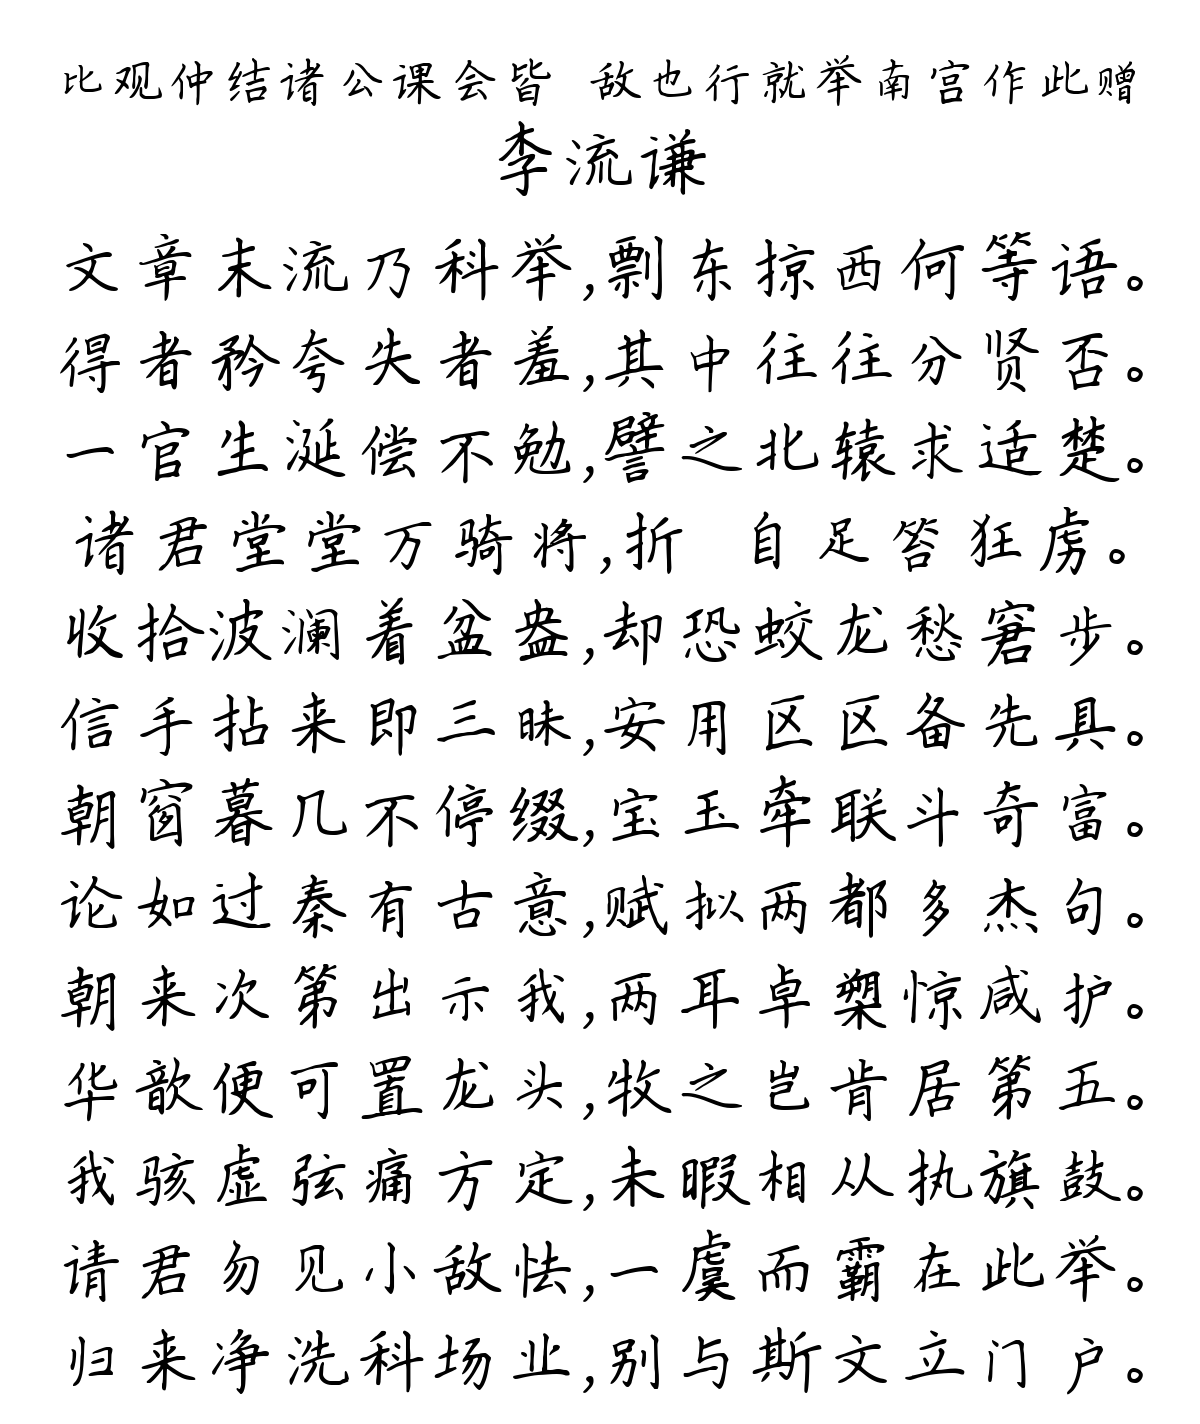 比观仲结诸公课会皆 敌也行就举南宫作此赠
李流谦
文章末流乃科举,剽东掠西何等语。
得者矜夸失者羞,其中往往分贤否。
一官生涎偿不勉,譬之北辕求适楚。
诸君堂堂万骑将,折 自足笞狂虏。
收拾波澜着盆盎,却恐蛟龙愁窘步。
信手拈来即三昧,安用区区备先具。
朝窗暮几不停缀,宝玉牵联斗奇富。
论如过秦有古意,赋拟两都多杰句。
朝来次第出示我,两耳卓槊惊咸护。
华歆便可置龙头,牧之岂肯居第五。
我骇虚弦痛方定,未暇相从执旗鼓。
请君勿见小敌怯,一虞而霸在此举。
归来净洗科场业,别与斯文立门户。